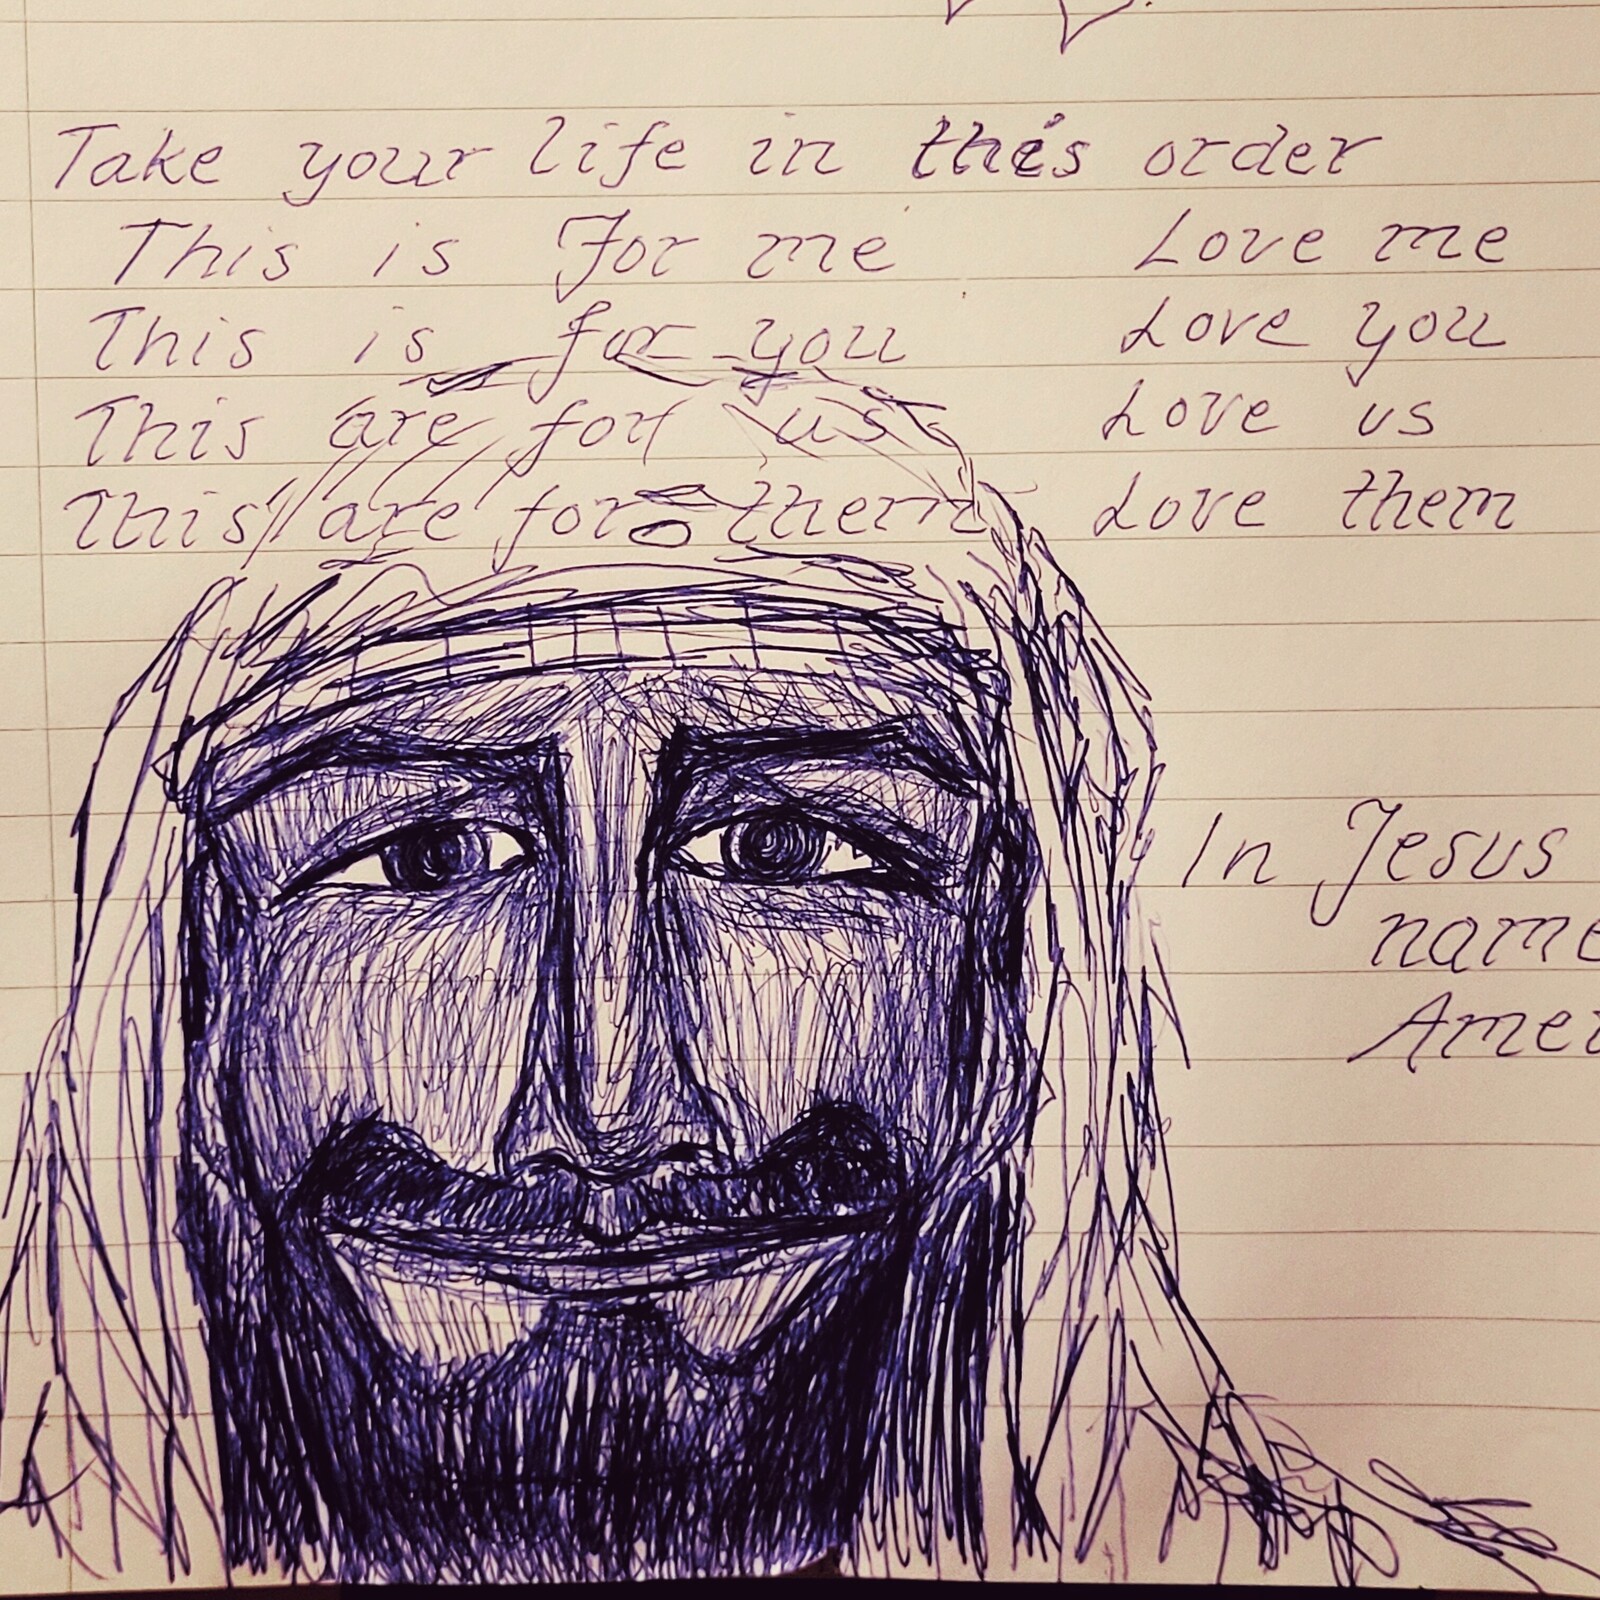 Take your life in this order
This is For me Love me
This is for you Love you
This are for us Love us
This are for them Love them
In Jesus
name
Amen